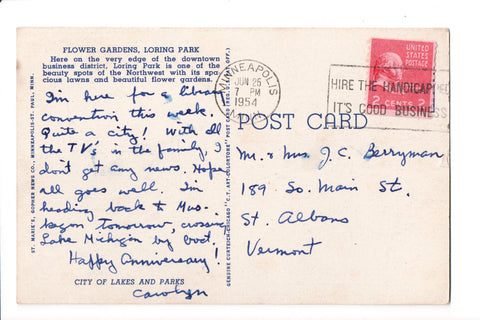 FLOWER GARDENS, LORING PARK
Here on the very edge of the downtown
business district, Loring Park is one of the
beauty spots of the Northwest with its spa-
cious lawns and beautiful flower gardens.
I'm here for a library
convention this week.
Quite a city! With all
the TV's in the family, I
don't get any news. Hope
all goes well. I'm
heading back to Mus-
kegon tomorrow, crossing
Lake Michigan by boat.
Happy Anniversary!
CITY OF LAKES AND PARKS
Carolyn
ST. MARIE'S, GOPHER NEWS CO., MINNEAPOLIS-ST. PAUL, MINN.
GENUINE CURTEICH-CHICAGO "C.T. ART-COLORTONE" POST CARD (REG. U.S. PAT. OFF.)
MINNEAPOLIS
JUN 25
7 PM
1954
MINN.
HIRE THE HANDICAPPED
IT'S GOOD BUSINESS
UNITED
STATES
POSTAGE
2 CENTS 2
POST CARD
Mr. & Mrs. J. C. Berryman
189 So. Main St.
St. Albans
Vermont